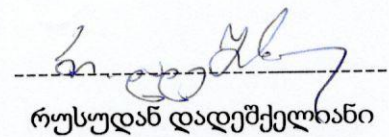 რუსუდან დადეშქელიანი